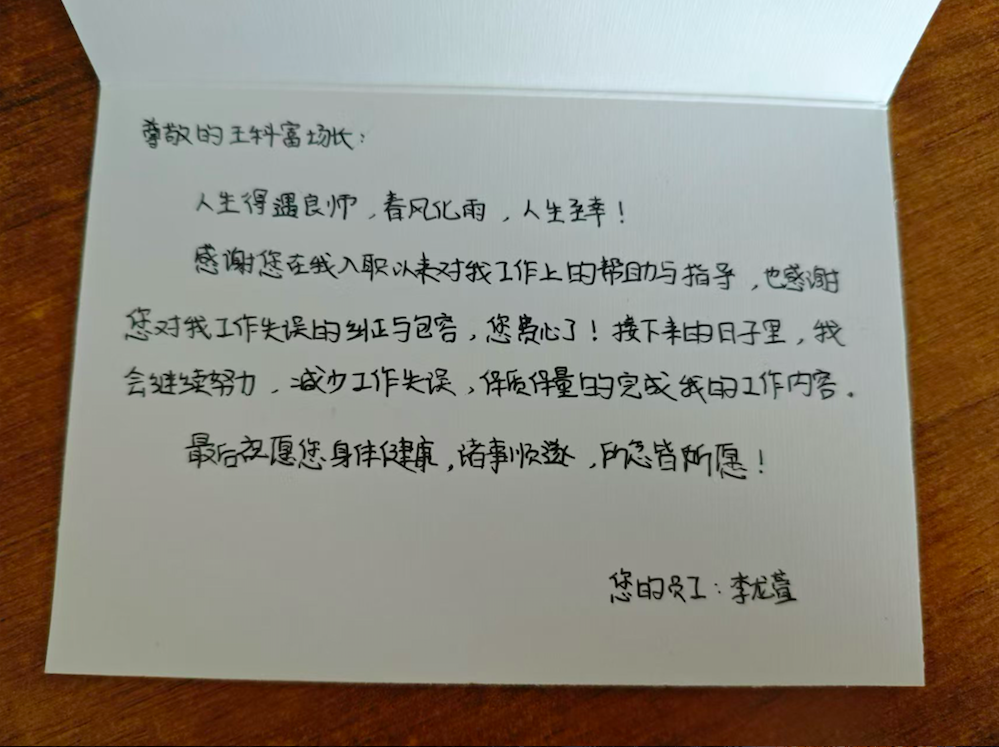 尊敬的王科富场长：
人生得遇良师，春风化雨，人生至幸！
感谢您在我入职以来对我工作上的帮助与指导，也感谢
您对我工作失误的纠正与包容，您费心了！接下来的日子里，我
会继续努力，减少工作失误，保质保量的完成我的工作内容。
最后祝愿您身体健康，诸事顺遂，所念皆所愿！
您的员工：李龙萱